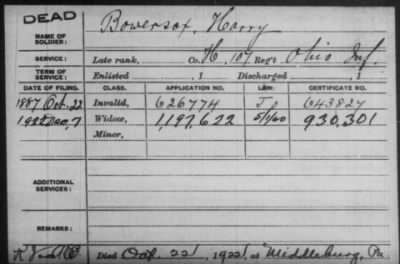 DEAD
NAME OF SOLDIER: Bowersox, Harry
SERVICE: Late rank, Co. H, 107 Reg't Ohio Inf.
TERM OF SERVICE: Enlisted , 1 Discharged , 1
DATE OF FILING. CLASS. APPLICATION NO. LAW. CERTIFICATE NO.
1887 Oct. 22 Invalid, 626774 J 643827
Dec. 7 Widow, 1,197,622 5/1/20 930,301
Minor,
ADDITIONAL SERVICES:
REMARKS:
Died 22, 1922, at Middleburg, Pa.